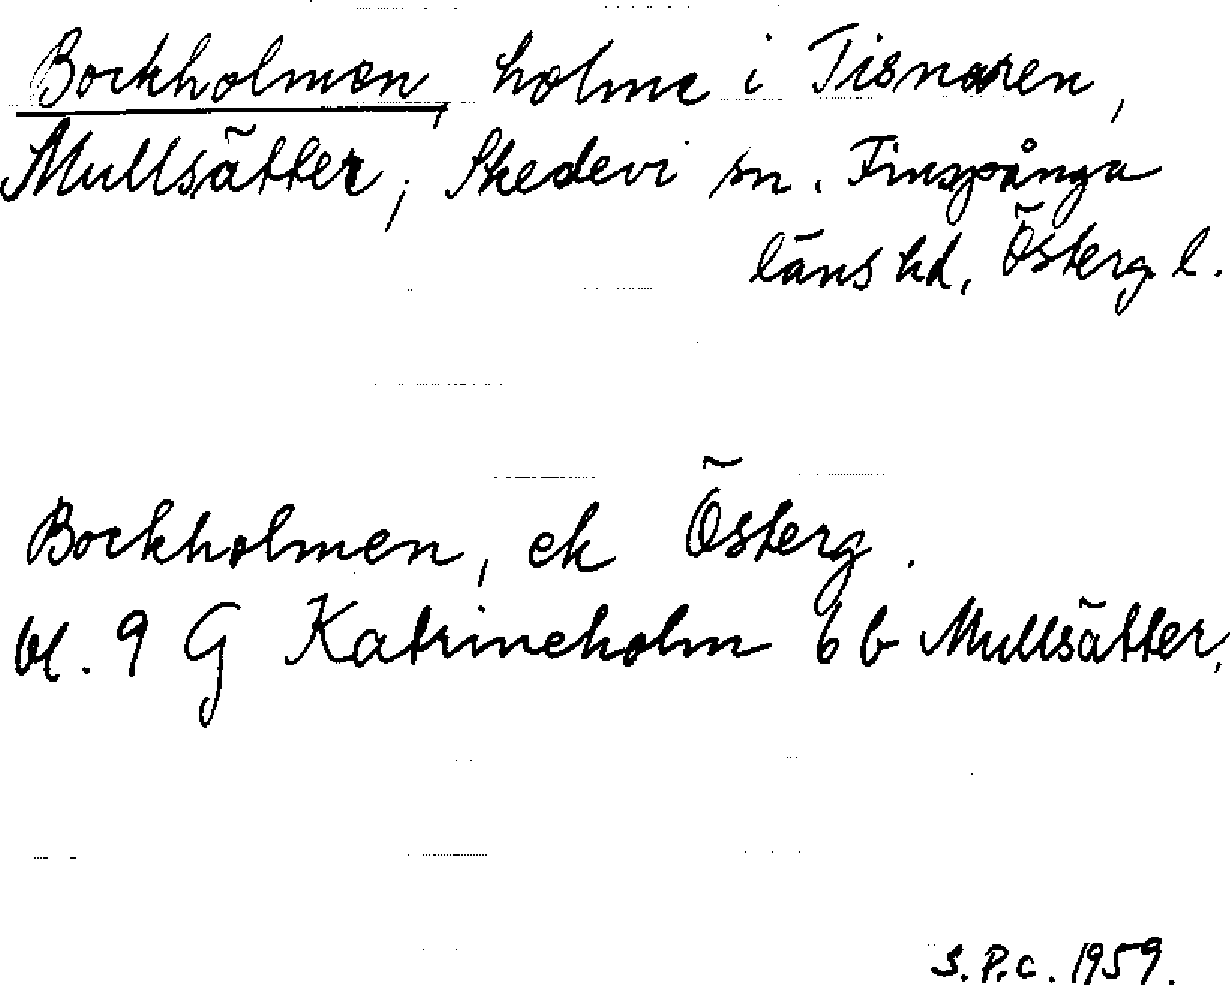 Bockholmen, holme i Tisnaren,
Mullsätter, Skedevi sn. Finspånga
läns hd, Österg. l.
Bockholmen, ek Österg.
bl. 9 G Katrineholm 6 b Mullsätter,
S.P.C. 1959.